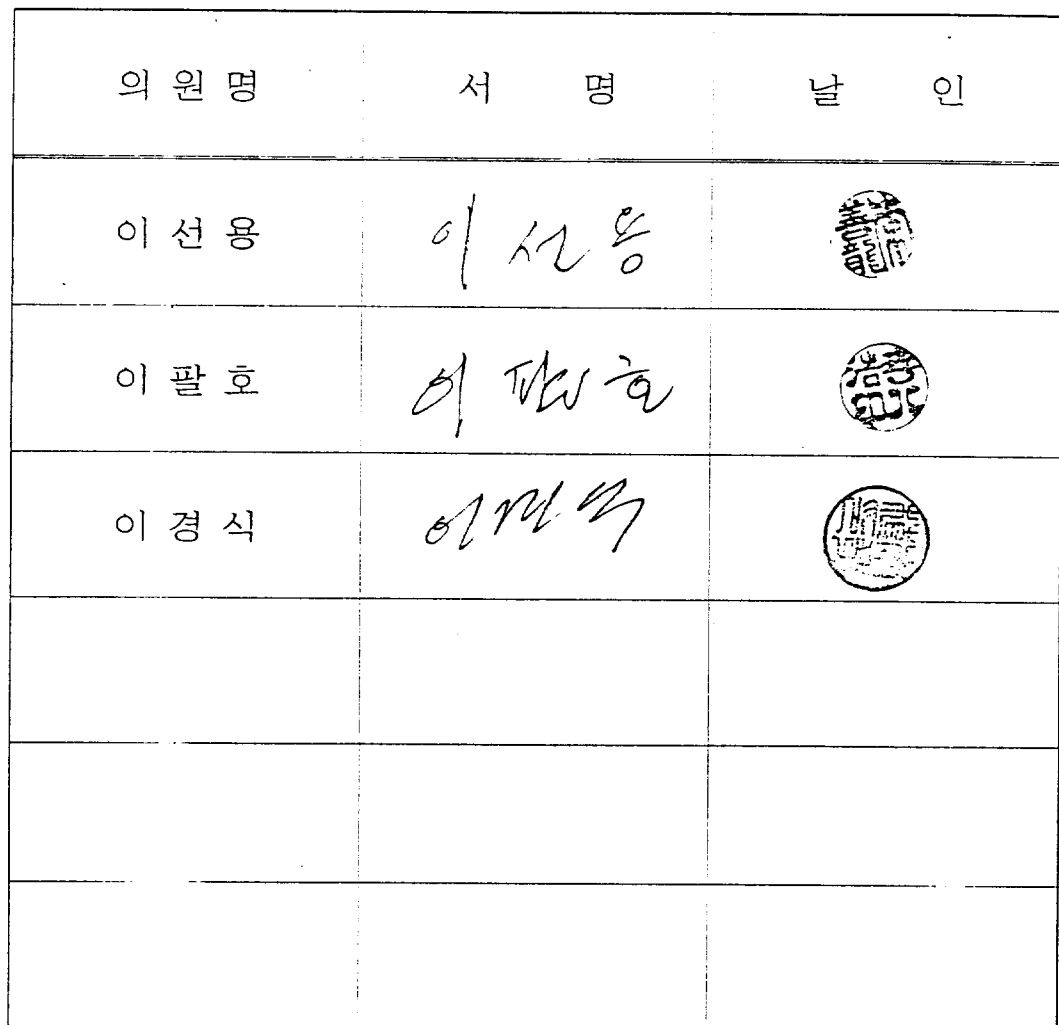 의 원 명 서 명 날 인
이 선 용 이 선 용
이 팔 호 이 팔 호
이 경 식 이 경 식